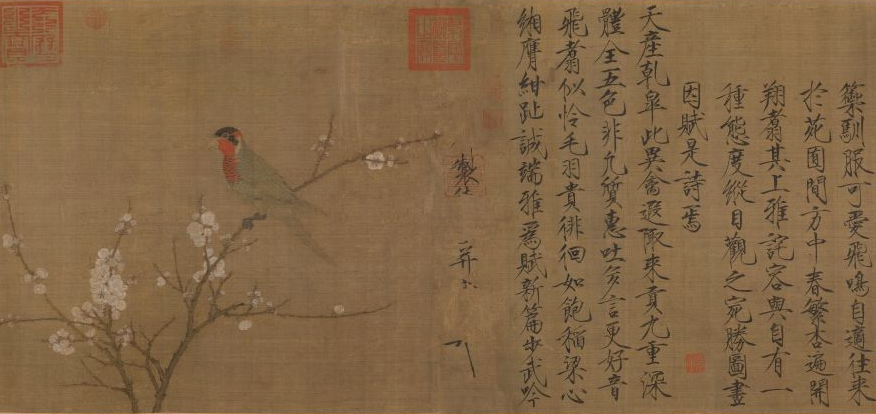 籞馴服可愛飛鳴自適往來
於苑囿間方中春繁杏遍開
翔翥其上雅詫容與自有一
種態度縱目觀之宛勝圖畫
因賦是詩焉
天產乾皐此異禽遐陬來貢九重深
體全五色非凡質惠吐多言更好音
飛翥似怜毛羽貴徘徊如飽稻粱心
緗膺紺趾誠端雅爲賦新篇步武吟
製
并